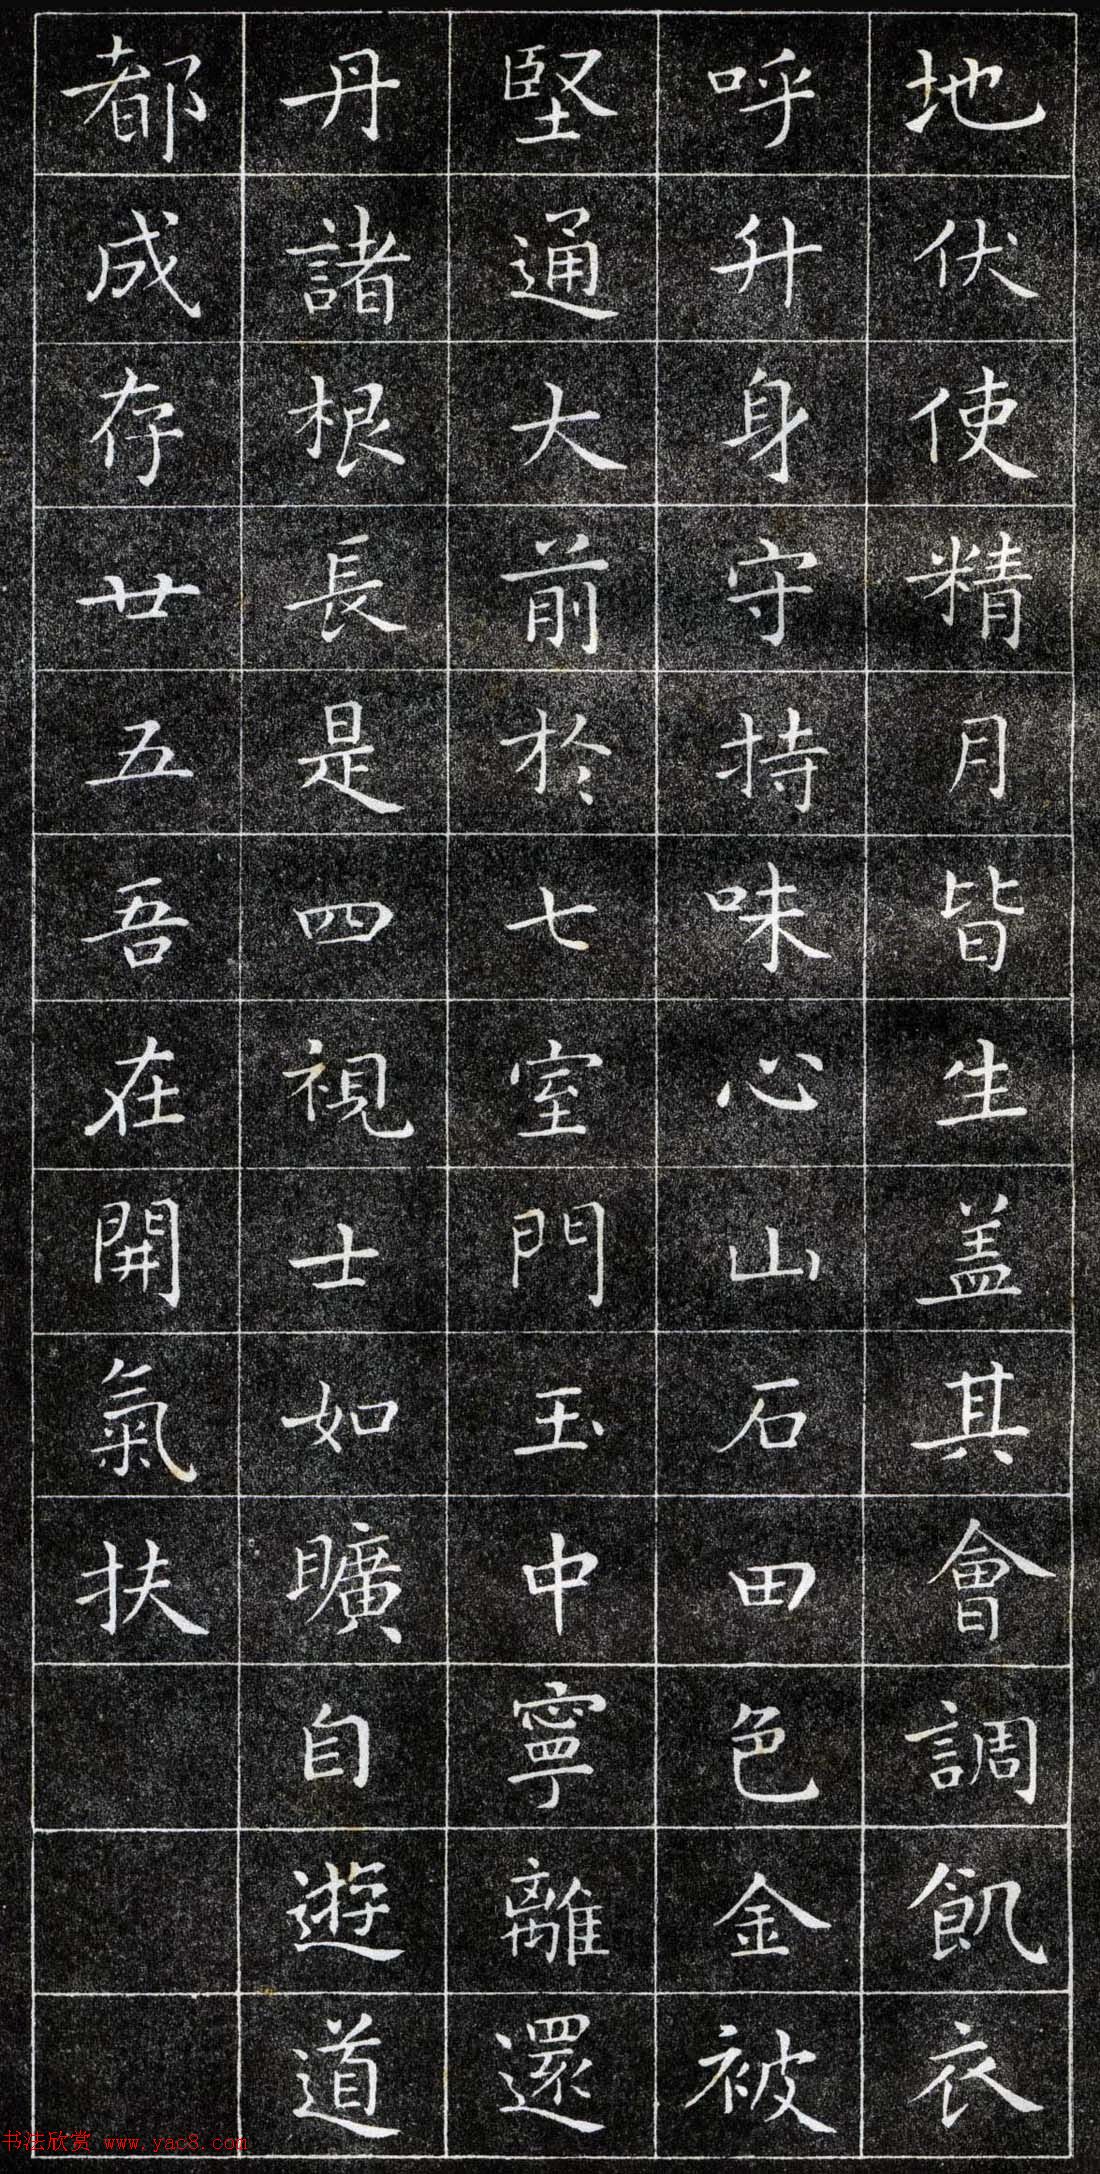 地伏使精月皆生盖其會調飢衣
呼升身守持味心山石田色金被
堅通大前於七室門玉中寧離還
丹諸根長是四視士如曠自遊道
都成存廿五吾在開氣扶
书法欣赏 www.yac8.com